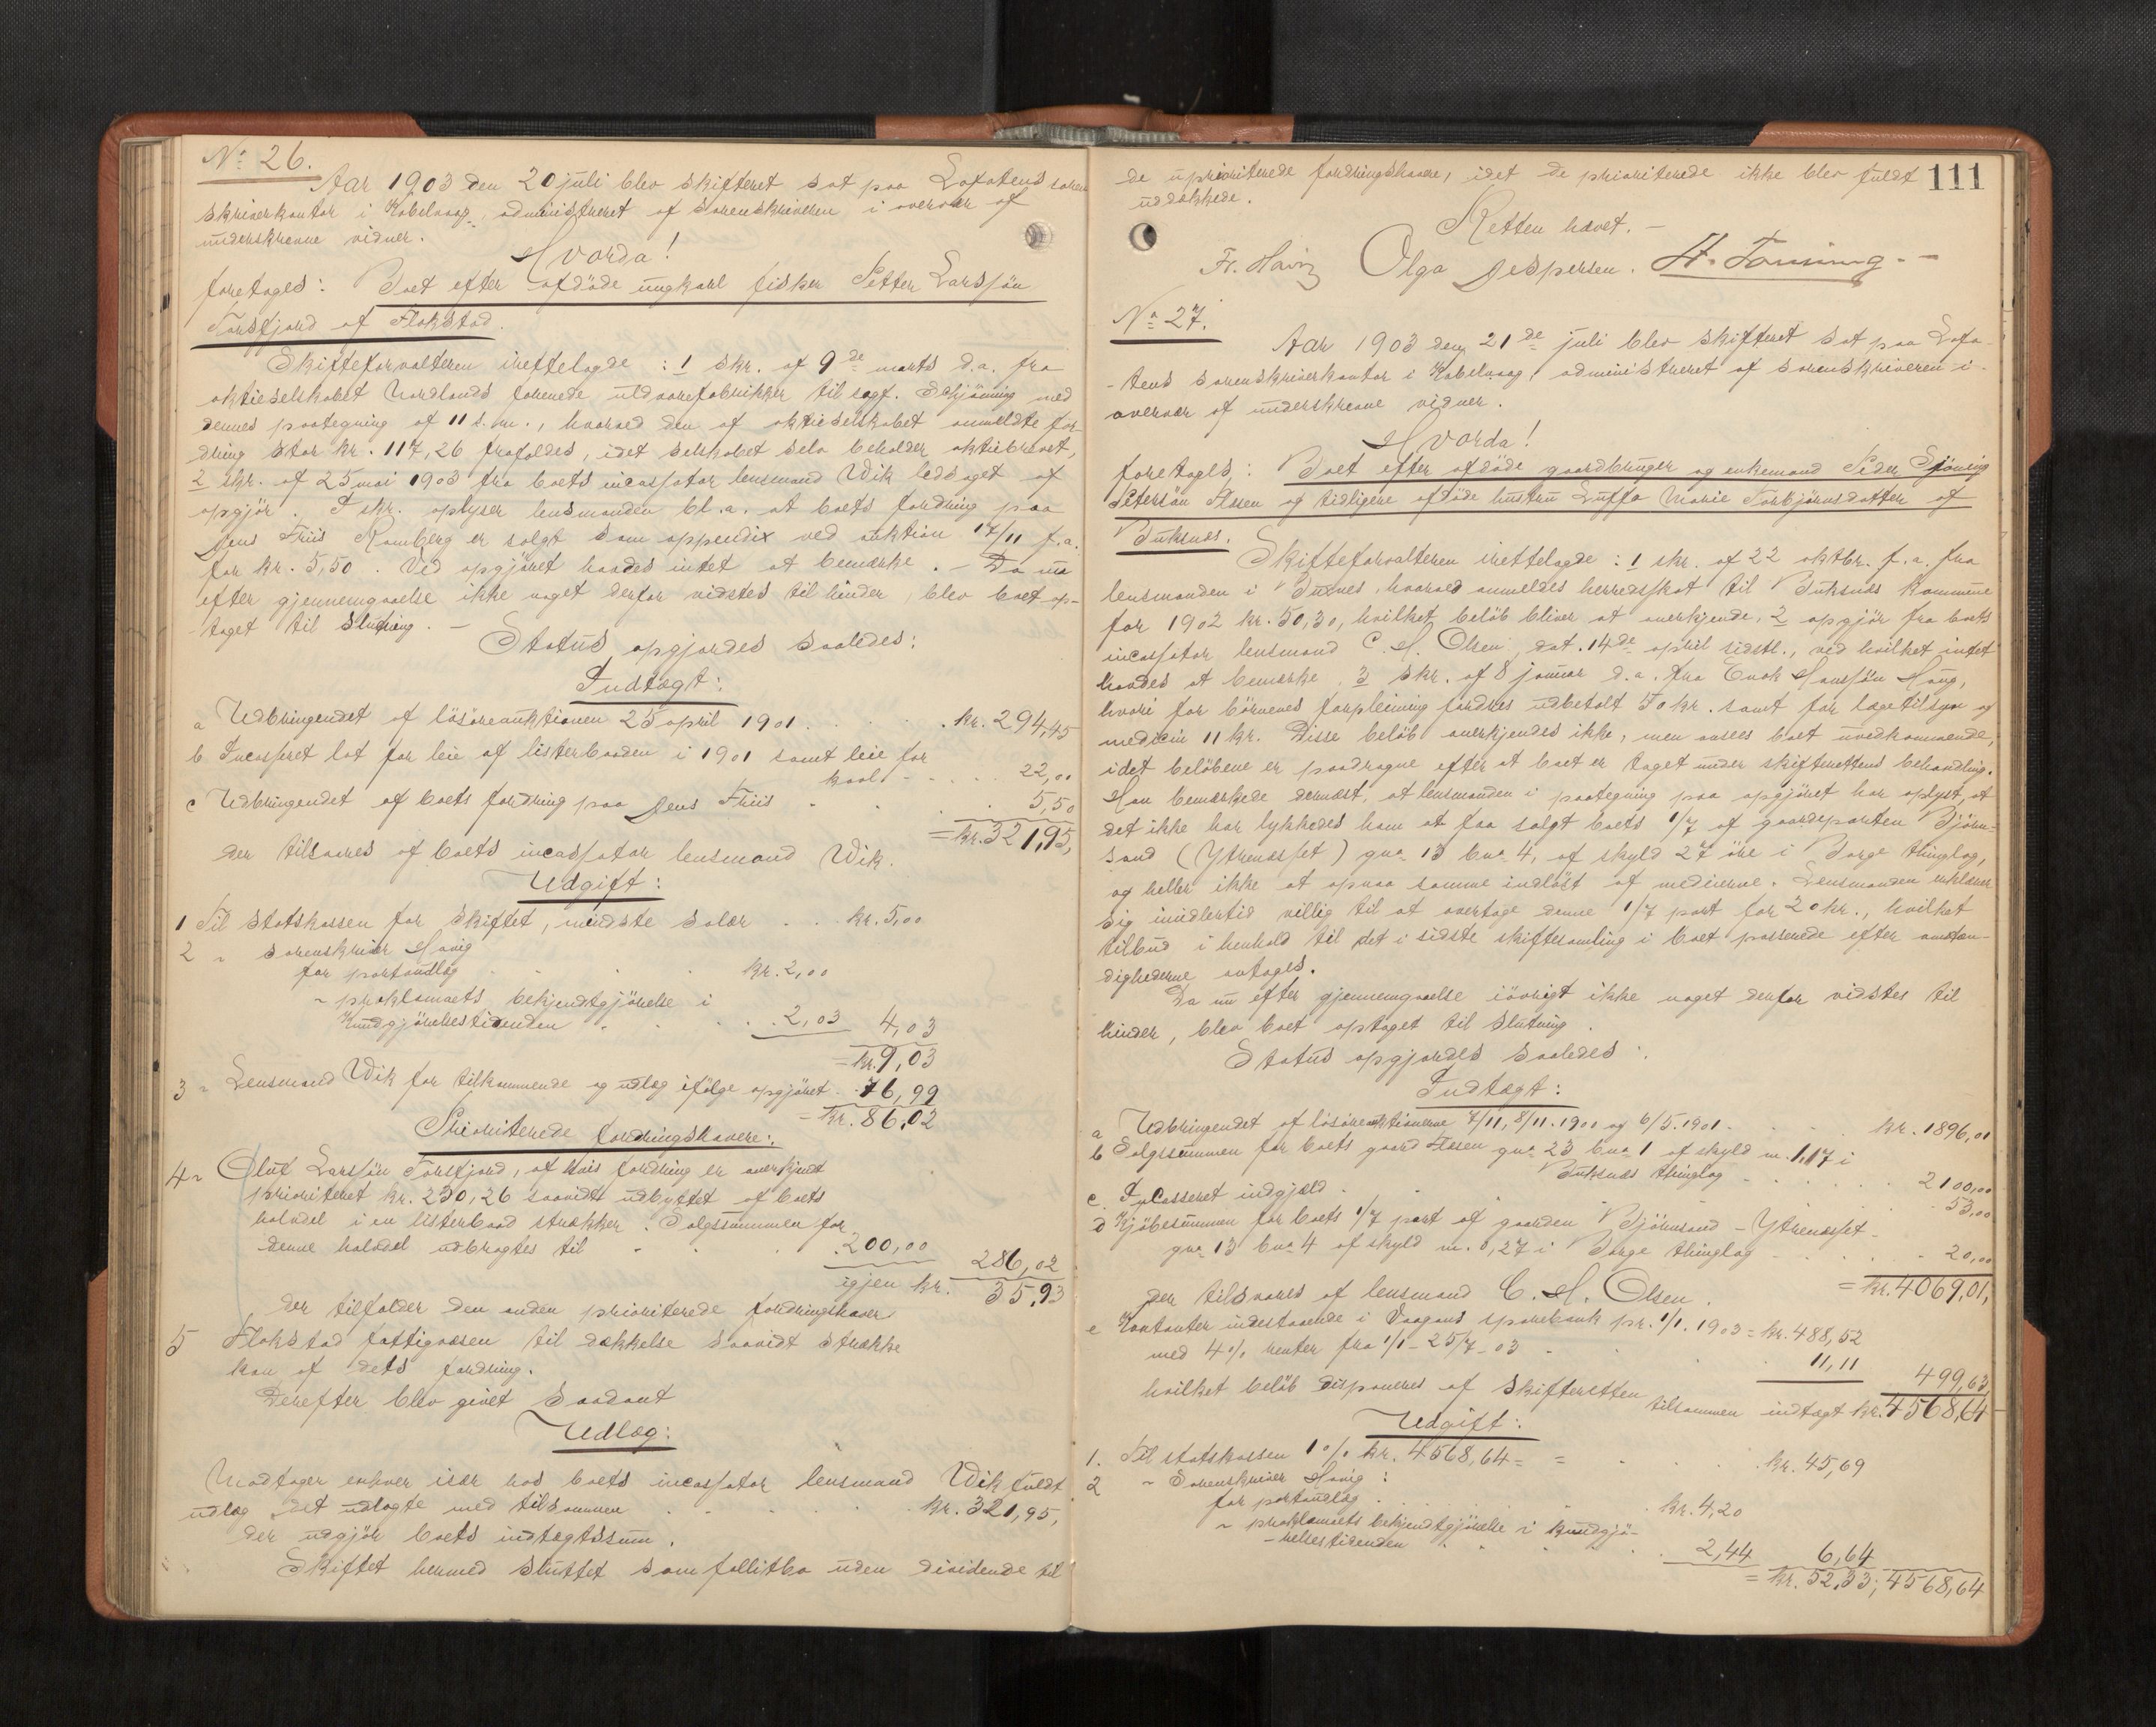 No 26.
Aar 1903 den 20 juli blev skifteret sat paa Lofotens soren
skriverkontor i Kabelvaag, administreret af sorenskriveren i overvær af
underskrevne vidner.
Hvorda!
foretoges: Boet efter afdöde ungkarl fisker Petter Larssön
Torsfjord af Flakstad.
Skifteforvalteren irettelagde: 1 skr. af 9de marts d.a. fra
aktieselskabet Nordlands forenede uldvarefabrikker til sagf. Schjöning med
dennes paategning af 11 s.m., hvorved den af aktieselskabet anmeldte for-
dring stor kr. 117,26 frafaldes, idet selskabet selv beholder aktiebrevet,
2 skr. af 25 mai 1903 fra boets incassator lensmand Wik ledsaget af
opgjör. I skr. oplyser lensmanden bl.a. at boets fordring paa
Jens Friis Ramberg er solgt som appendix ved auktion 17/11 f.a.
for kr. 5,50. Ved opgjöret havdes intet at bemærke. – Da nu
efter gjennemgaaelse ikke noget derfor vidstes til hinder, blev boet op-
taget til slutning. –
Status opgjordes saaledes:
Indtægt:
a Udbringendet af lösöreauktionen 25 april 1901 . . . . kr. 294,45
b Incasseret lot for leie af listerbaaden i 1901 samt leie for
baad - . . . . 22,00
c Udbringendet af boets fordring paa Jens Friis . . . 5,50
= kr. 321,95,
der tilsvares af boets incassator lensmand Wik.
Udgift:
1 Til statskassen for skiftet, mindste salær . . . kr. 5,00
2 " sorenskriver Havig
for portoudlæg . . . . kr. 2,00
" proklamaets bekjendtgjörelse i
Kundgjörelsestidenden . . . . 2,03 4,03
= kr. 9,03
3 " Lensmand Wik for tilkommende og udlæg ifölge opgjöret . 76,99
- kr. 86,02
Prioriterede fordringshavere:
4 " Oluf Larssön Torsfjord, af hvis fordring er anerkjendt
prioriteret kr. 230,26 saavidt udbyttet af boets
halvdel i en listerbaad strækker. Salgssummen for
denne halvdel udbragtes til . . . 200,00
286,02
igjen kr. 35,93
der tilfalder den anden prioriterede fordringshaver
5 Flakstad fattigvæsen til dækkelse saavidt strække
kan af dets fordring.
Derefter blev givet saadant
Udlæg:
Modtager enhver især hos boets incassator lensmand Wik fuldt
udlæg det udlagte med tilsammen . . . . kr. 321,95,
der udgjör boets indtægtssum.
Skiftet hermed sluttet som fallitbo uden dividende til
111
de uprioriterede fordringshavere, idet de prioriterede ikke blev fuldt
uddækkede.
Retten hævet. –
Fr. Havig Olga Jespersen. H. Tønning. –
No 27.
Aar 1903 den 21de juli blev skifteret sat paa Lofo-
-tens sorenskriverkontor i Kabelvaag, administreret af sorenskriveren i
overvær af underskrevne vidner.
Hvorda!
foretoges: Boet efter afdöde gaardbruger og enkemand Peder
Petersön Æsen og tidligere afdöde hustru Luffa Marie Torbjörnsdatter af
Buksnæs.
Skifteforvalteren irettelagde: 1 skr. af 22 oktbr. f.a. fra
lensmanden i Buxnes, hvorved anmeldes herredsskat til Buksnæs kommune
for 1902 kr. 50,30, hvilket beløb bliver at anerkjende, 2 opgjör fra boets
incassator lensmand C. H. Olsen, dat. 14de april sidstl., ved hvilket intet
havdes at bemærke, 3 skr. af 8 januar d.a. fra Enok Hanssön Haug,
hvori for börnenes forpleining fordres udbetalt 70 kr. samt for lægetilsyn og
medicin 11 kr. Disse beløb anerkjendes ikke, men ansees boet uvedkommende,
idet belöbene er paadragne efter at boet er taget under skifterettens behandling.
Han bemærkede dernæst, at lensmanden i paategning paa opgjöret har oplyst, at
det ikke har lykkedes ham at faa solgt boets 1/7 af gaardsparten Björn-
sand (Ytrenæsset) gno 13 bno 4, af skyld 27 öre i Borge thinglag,
og heller ikke at opnaa samme indlöst af medeierne. Lensmanden erklærer
sig imidlertid villig til at overtage denne 1/7 part for 20 kr., hvilket
tilbud i henhold til det i sidste skiftesamling i boet passerede efter omstæn-
dighederne antoges.
Da nu efter gjennemgaaelse iövrigt ikke noget derfor vidstes til
hinder, blev boet optaget til slutning.
Status opgjordes saaledes:
Indtægt:
a Udbringendet af lösöreauktionerne 7/11, 8/11. 1900 og 6/5. 1901 . . . . kr. 1896,01
b Salgssummen for boets gaard Æsen gno 23 bno 1 af skyld m. 1,17 i
Buksnæs thinglag . . . . . 2100,00
c. Incasseret indgjæld . . . . . 53,00
d Kjöbesummen for boets 1/7 part af gaarden Björnsand - Ytrenæsset -
gno 13 bno 4 af skyld m. 0,27 i Borge thinglag . . . . 20,00
= kr. 4069,01,
der tilsvares af lensmand C. H. Olsen.
e Kontanter indestaaende i Vaagans sparebank pr. 1/1. 1903 = kr. 488,52
med 4% renter fra 1/1 - 25/7 - 03 . . . 11,11 499,63
hvilket beløb disponeres af skifteretten tilsammen indtægt kr. 4568,64
Udgift:
1. Til statskassen 1% kr. 4568,64 = = . . . . kr. 45,69
2 " Sorenskriver Havig:
for portoudlæg . . . . kr. 4,20
" proklamaets bekjendtgjörelse i kundgjö-
-relsestidenden . . . . 2,44 6,64
= kr. 52,33; 4568,64